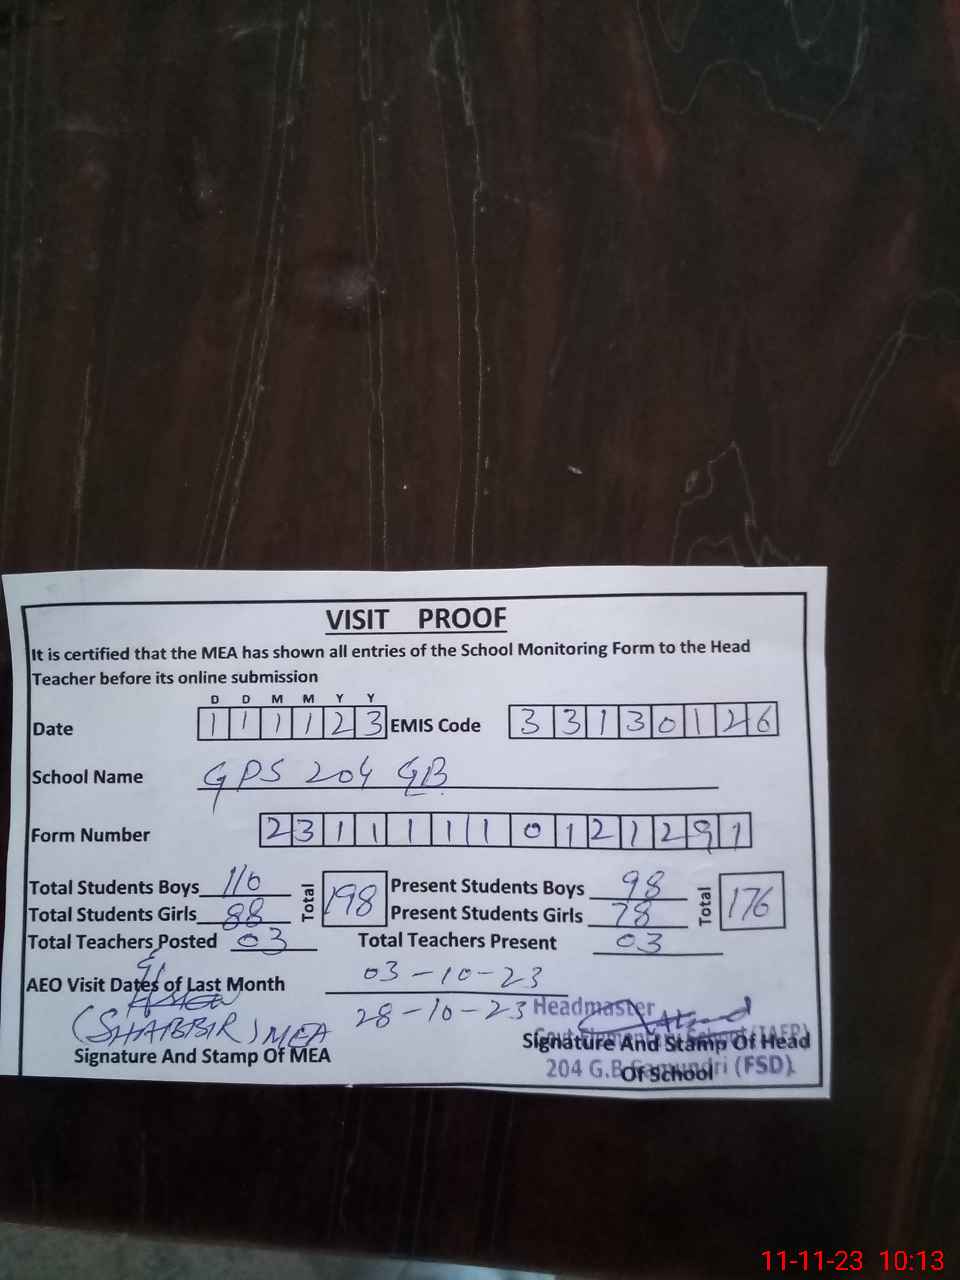 VISIT PROOF
It is certified that the MEA has shown all entries of the School Monitoring Form to the Head
Teacher before its online submission
D D M M Y Y
Date 1 1 1 1 2 3 EMIS Code 3 3 1 3 0 1 2 6
School Name GPS 204 GB
Form Number 2 3 1 1 1 1 1 0 1 2 1 2 9 1
Total Students Boys 110 Total 198 Present Students Boys 98 Total 176
Total Students Girls 88 Present Students Girls 78
Total Teachers Posted 03 Total Teachers Present 03
AEO Visit Dates of Last Month 03-10-23
28-10-23 Headmaster
(SHABBIR) MEA
Signature And Stamp Of MEA Signature And Stamp Of Head
Of School
Govt. Elementary School
204 G.B Samundri (FSD)
11-11-23 10:13